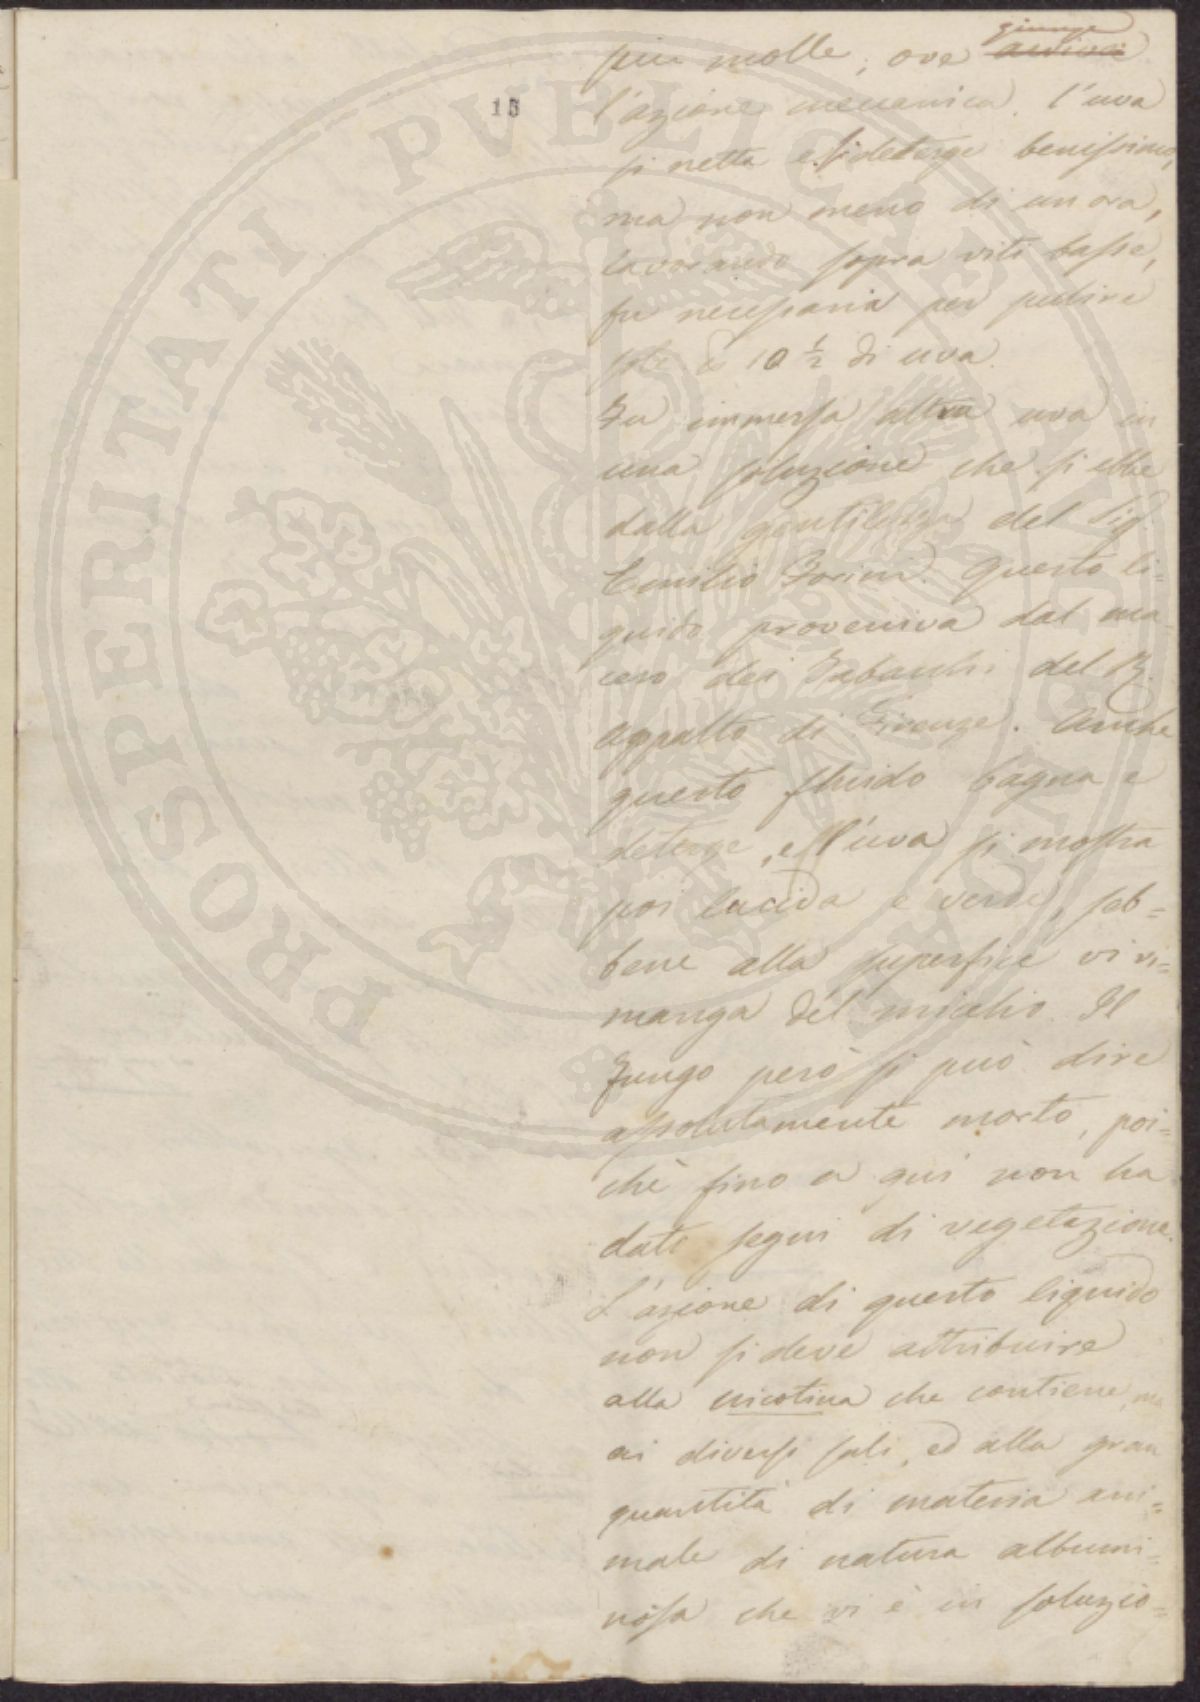 15
giunge
più molle, ove arriva
l'azione meccanica. l'uva
si netta e si deterge benissimo,
ma non meno di un ora,
lavorando sopra viti basse,
fu necessaria per pulire
10 ½ di uva.
Fu immersa altra uva in
una soluzione che si ebbe
dalla gentilezza del Sig.
Emilio Forini. Questo li=
quido proveniva dal ma
cero dei Tabacchi del R.
Appalto di Firenze. Anche
questo fluido bagna e
deterge, e l'uva si mostra
poi lucida e verde, seb=
bene alla superfice vi ri=
manga del micelio. Il
Fungo però si può dire
assolutamente morto, poi=
chè fino a qui non ha
dati segni di vegetazione.
L'azione di questo liquido
non si deve attribuire
alla nicotina che contiene, ma
ai diversi sali, ed alla gran
quantità di materia ani=
male di natura albumi=
nosa che vi è in soluzio=
PROSPERITATI PVBLICAE AVGENDAE